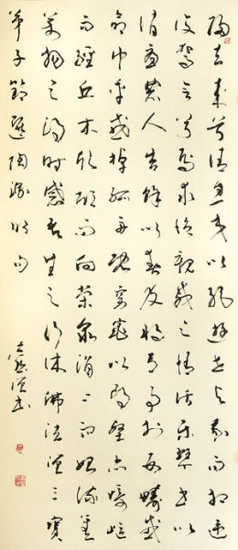 歸去來兮請息交以絕遊世與我而相違
復駕言兮焉求悅親戚之情話樂琴書以
消憂農人告余以春及將有事於西疇或
命巾車或棹孤舟既窈窕以尋壑亦崎嶇
而經丘木欣欣而向榮泉涓涓而始流善
萬物之得時感吾生之行休佛法僧三寶
弟子節選陶淵明句
書